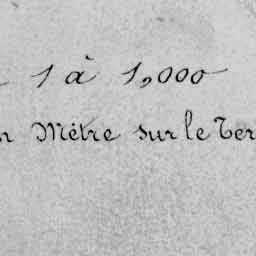 1 à 1,000
Mètre sur le